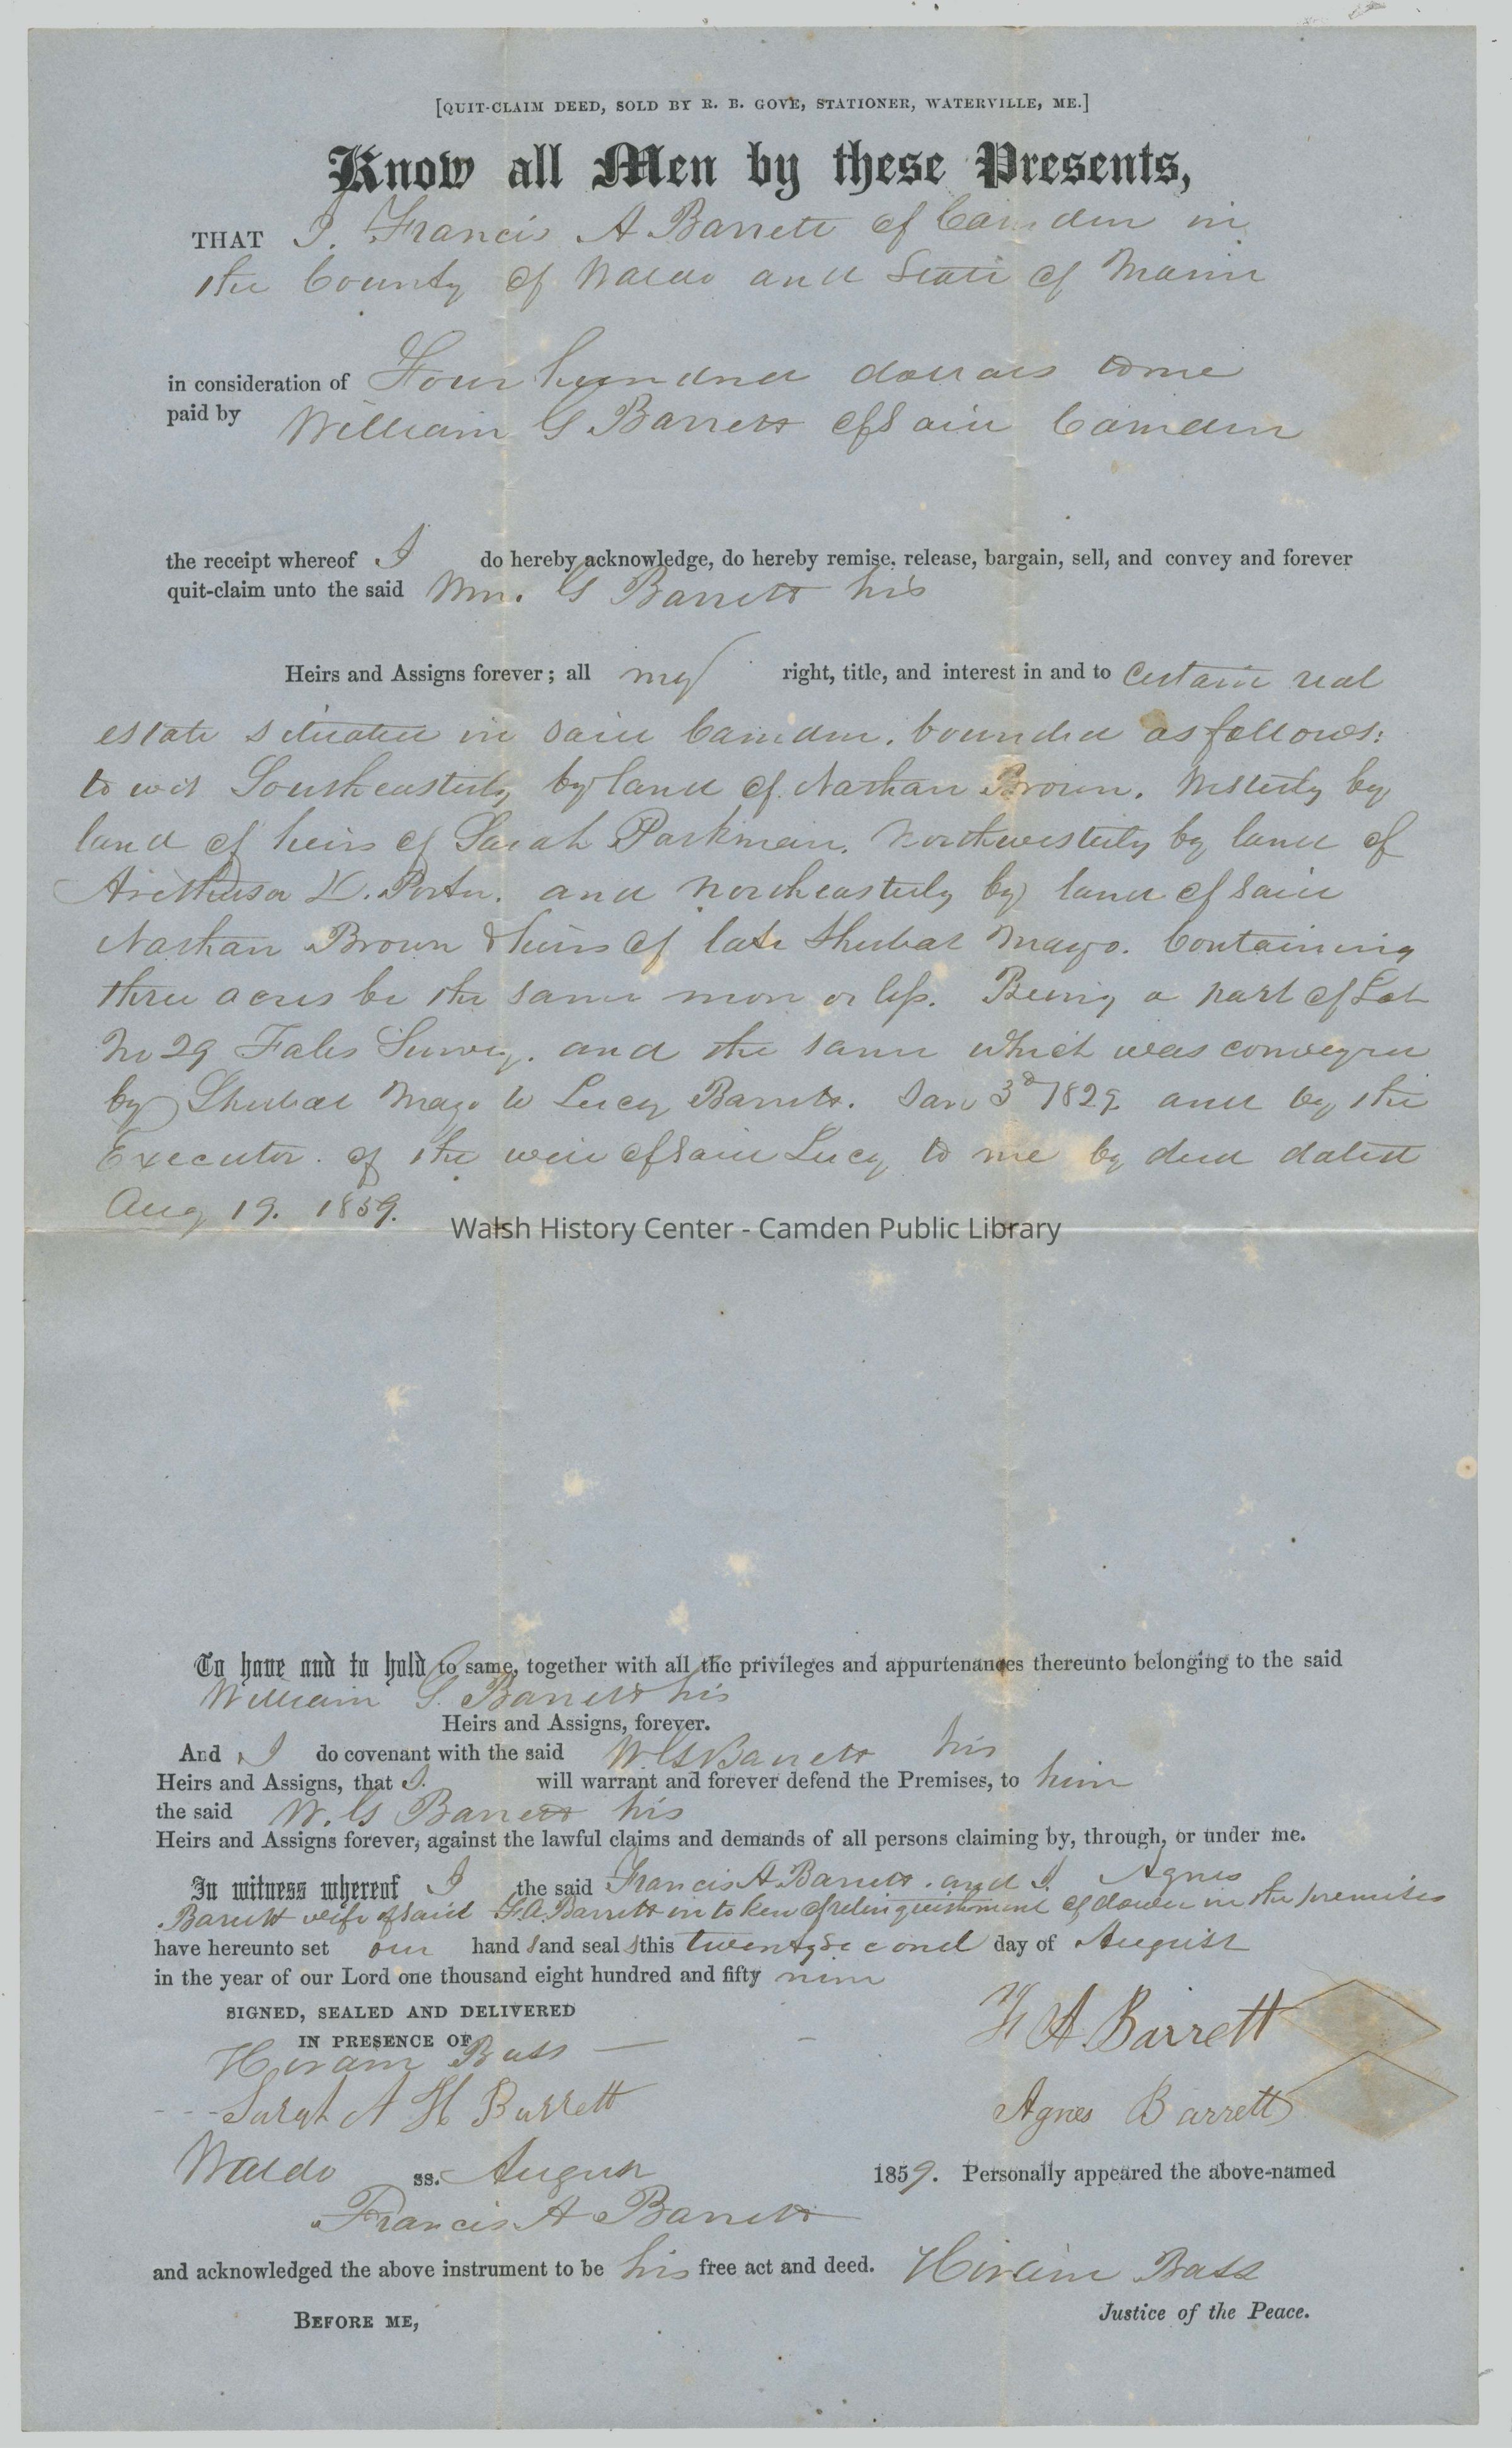 [QUIT-CLAIM DEED, SOLD BY R. B. GOVE, STATIONER, WATERVILLE, ME.]
Know all Men by these Presents,
THAT I. Francis A Barrett of Camden in
the County of Waldo and State of Maine
in consideration of Four hundred dollars to me
paid by William G Barrett of said Camden
the receipt whereof I do hereby acknowledge, do hereby remise, release, bargain, sell, and convey and forever
quit-claim unto the said Wm. G Barrett his
Heirs and Assigns forever; all my right, title, and interest in and to certain real
estate situated in said Camden, bounded as follows:
to wit Southeasterly by land of Nathan Brown. Westerly by
land of heirs of Sarah Parkman. Northwesterly by land of
Arethusa K. Porter. and northeasterly by land of said
Nathan Brown & heirs of late Shubal Mayo. Containing
three acres be the same more or less. Being a part of Lot
No 29 Fales Survey. and the same which was conveyed
by Shubal Mayo to Lucy Barrett. Jan 3d 1829 and by the
Executor of the will of said Lucy to me by deed dated
Aug 19. 1859.
Walsh History Center - Camden Public Library
To have and to hold to same, together with all the privileges and appurtenances thereunto belonging to the said
William G. Barrett his
Heirs and Assigns, forever.
And I do covenant with the said W G Barrett his
Heirs and Assigns, that I. will warrant and forever defend the Premises, to him
the said W. G Barrett his
Heirs and Assigns forever, against the lawful claims and demands of all persons claiming by, through, or under me.
In witness whereof I the said Francis A Barrett. and I Agnes
Barrett wife of said F A Barrett in token of relinquishment of dower in the premises
have hereunto set our hand s and seal s this twenty second day of August
in the year of our Lord one thousand eight hundred and fifty nine
SIGNED, SEALED AND DELIVERED
IN PRESENCE OF
Hiram Bass
F A Barrett
Sarah A H Barrett
Agnes Barrett
Waldo ss. August 1859. Personally appeared the above-named
Francis A Barrett
and acknowledged the above instrument to be his free act and deed. Hiram Bass
BEFORE ME, Justice of the Peace.